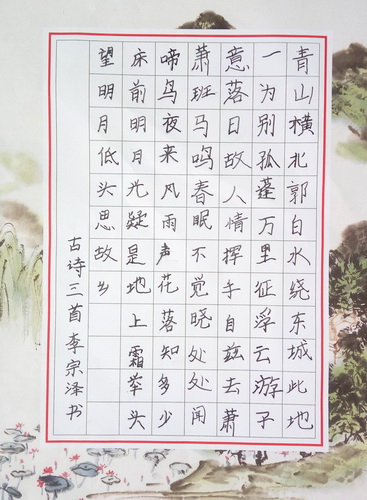 青山横北郭白水绕东城此地
一为别孤蓬万里征浮云游子
意落日故人情挥手自兹去萧
萧班马鸣春眠不觉晓处处闻
啼鸟夜来风雨声花落知多少
床前明月光疑是地上霜举头
望明月低头思故乡
古诗三首 李宗泽书